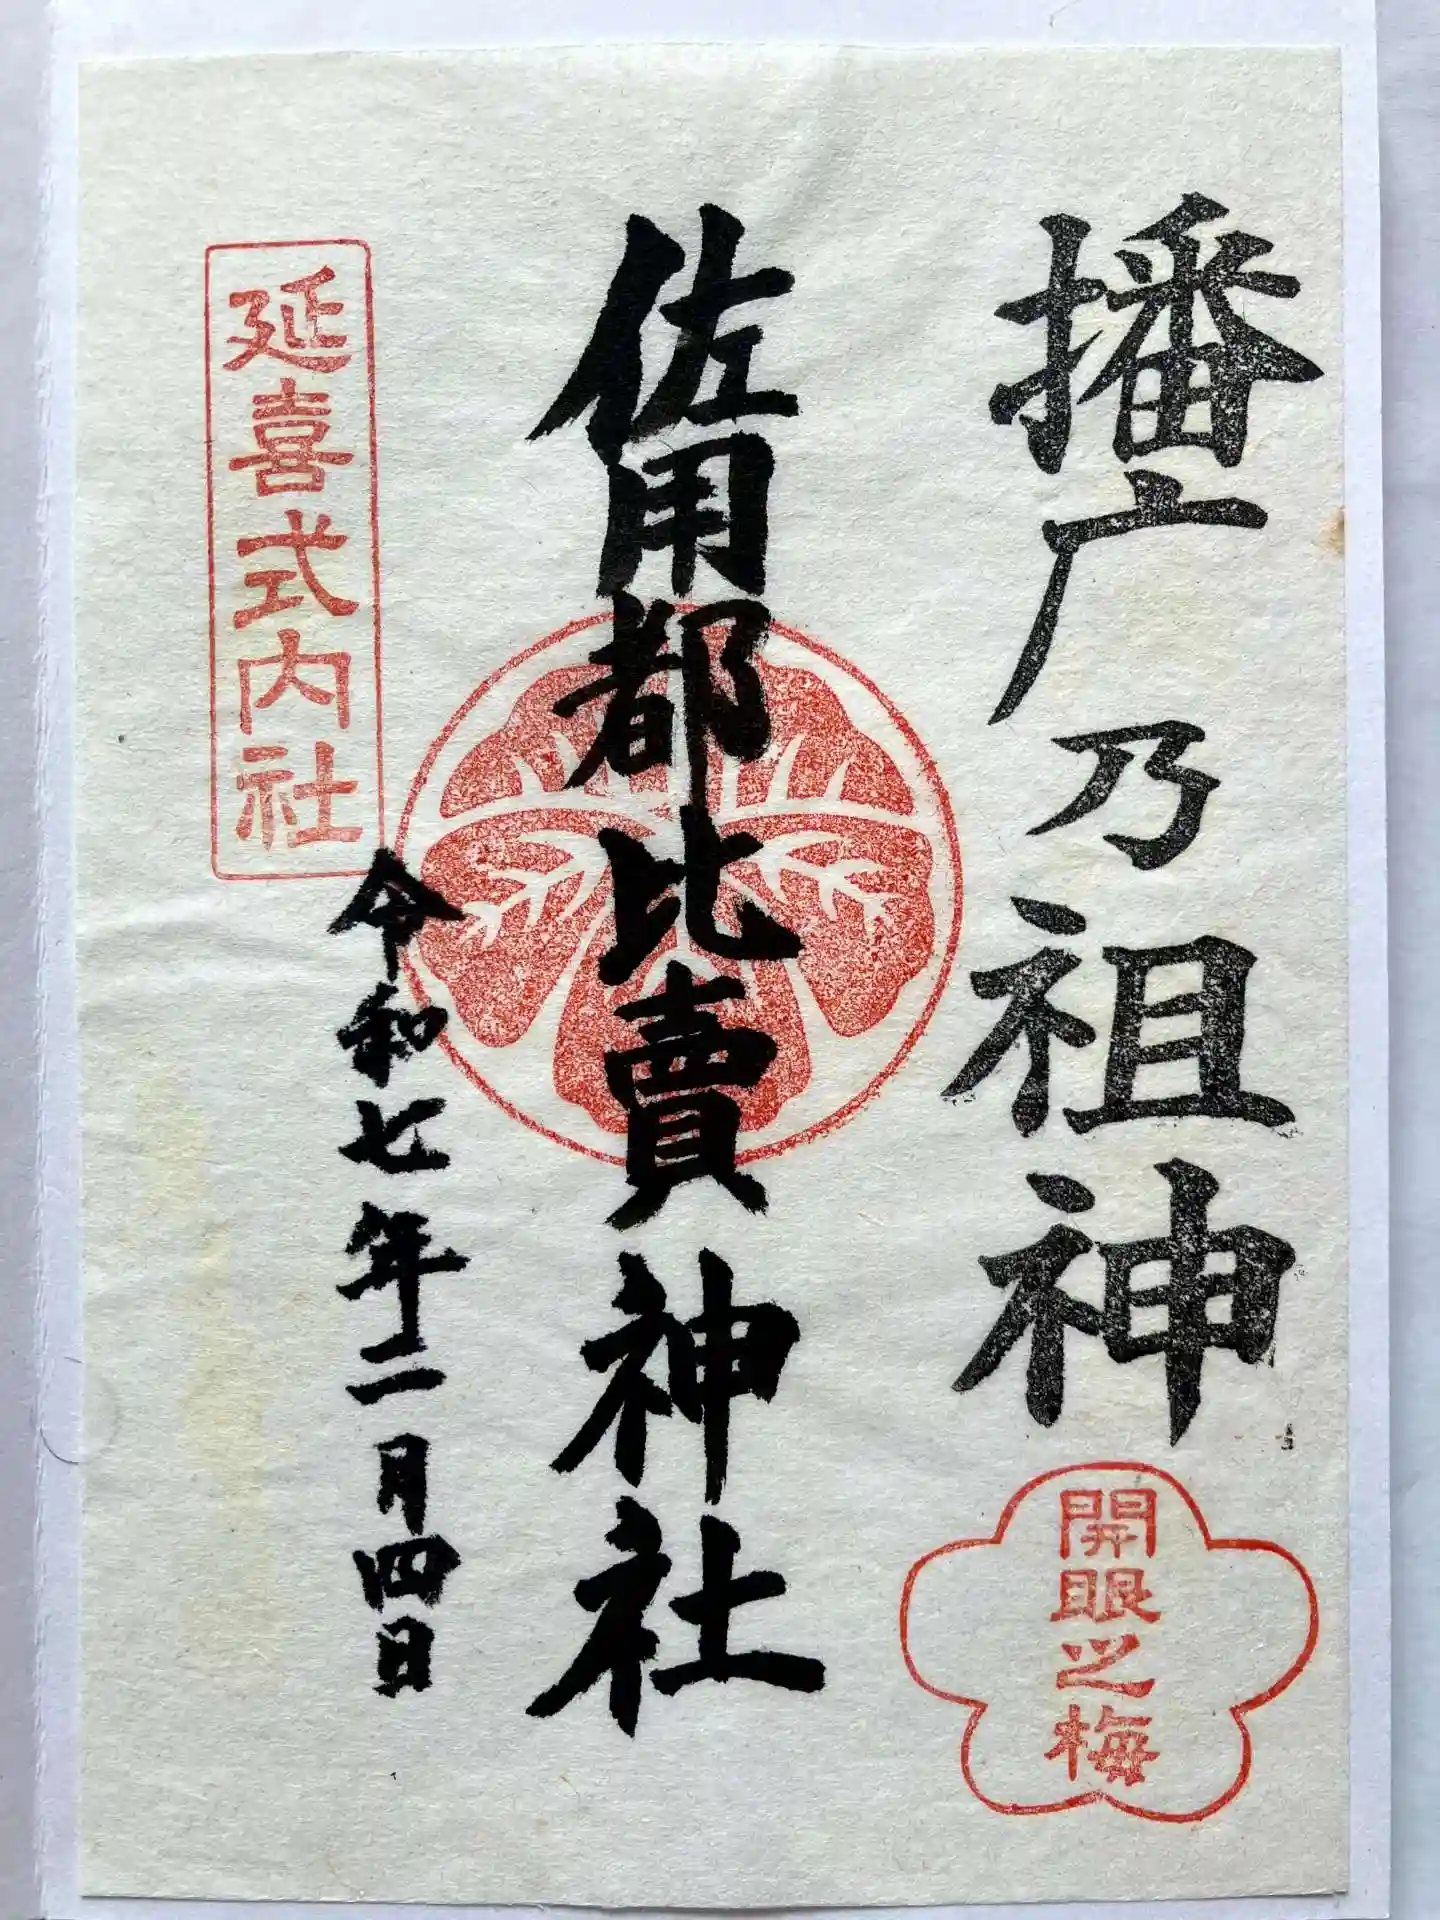 播广乃祖神
開眼之梅
佐用都比賣神社
令和七年二月四日
延喜式内社